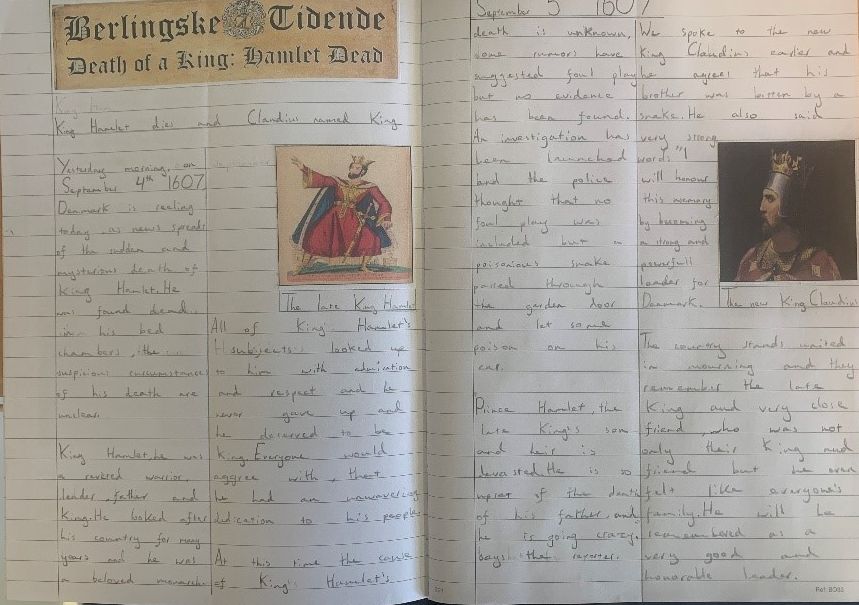 Berlingske Tidende
Death of a King: Hamlet Dead
King Hamlet dies and Claudius named King
Yesterday morning, on
September 4th 1607
Denmark is reeling
today as news spreads
of the sudden and
mysterious death of
King Hamlet. He
was found dead
in his bed
chambers, the
suspicious circumstances
of his death are
unclear.
King Hamlet, he was
a revered warrior,
leader, father and
King. He looked after
his country for many
years and he was
a beloved monarch.
The late King Hamlet
All of King Hamlet's
subjects looked up
to him with admiration
and respect and he
never gave up and
he deserved to be
King. Everyone would
aggree with, that
he had an unwavering
didication to his people
At this time the cause
of King's Hamlet's
September 5 1607
death is unknown,
some rumors have
suggested foul play
but no evidence
has been found.
An investigation has
been launched
and the police
thought that no
foul play was
included but a
poisonious snake
passed through
the garden door
and let some
poison on his
ear.
Prince Hamlet, the
late King's son
and heir is
devasted. He is so
upset of the death
of his father, and
he is going crazy.
says the reporter.
We spoke to the new
King Claudius earlier and
he agrees that his
brother was bitten by a
snake. He also said
very strong
words "I
will honour
this memory
by becoming
a strong and
powerfull
leader for
Denmark.
The new King Claudius
The country stands united
in mourning and they
remember the late
King and very close
friend, who was not
only their King and
friend but he even
felt like everyone's
family. He will be
remembered as a
very good and
honorable leader.